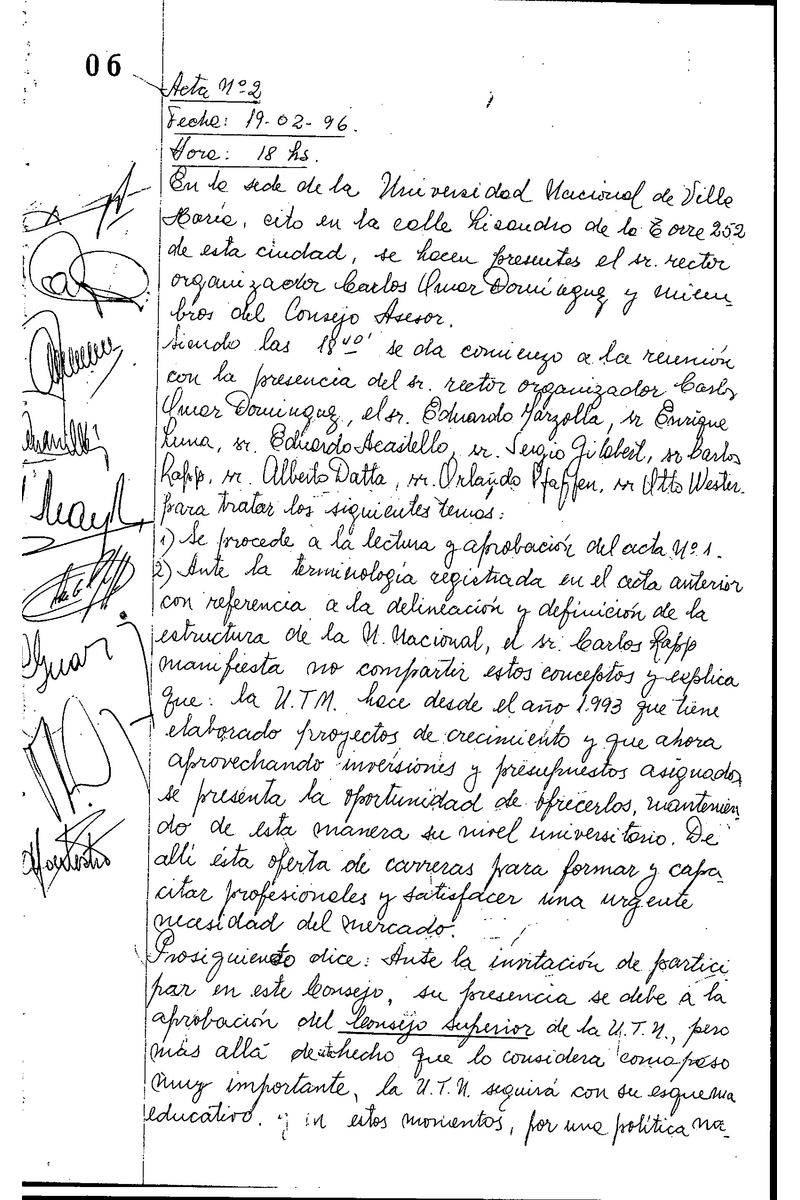 06
Acta Nº 2
Fecha: 19-02-96.
Hora: 18 hs.
En la sede de la Universidad Nacional de Villa
María, cito en la calle Lisandro de la Torre 252
de esta ciudad, se hacen presentes el sr. rector
organizador Carlos Omar Domínguez y miem-
bros del Consejo Asesor.
Siendo las 18 40' se da comienzo a la reunión
con la presencia del sr. rector organizador Carlos
Omar Domínguez, el sr. Eduardo Marzolla, sr Enrique
Luna, sr. Eduardo Acastello, sr. Sergio Gilabert, sr Carlos
Rapp, sr. Alberto Datta, sr. Orlando Pfaffen, sr Otto Wester.
para tratar los siguientes temas:
1) Se procede a la lectura y aprobación del acta Nº 1.
2) Ante la terminología registrada en el acta anterior
con referencia a la delineación y definición de la
estructura de la U. Nacional, el sr. Carlos Rapp
manifiesta no compartir estos conceptos y explica
que: la U.T.N. hace desde el año 1.993 que tiene
elaborado proyectos de crecimiento y que ahora
aprovechando inversiones y presupuestos asignados
se presenta la oportunidad de ofrecerlos, mantenien-
do de esta manera su nivel universitario. De
allí ésta oferta de carreras para formar y capa-
citar profesionales y satisfacer una urgente
necesidad del mercado.
Prosiguiendo dice: Ante la invitación de partici
par en este Consejo, su presencia se debe a la
aprobación del Consejo Superior de la U.T.N., pero
más allá de hecho que lo considera como paso
muy importante, la U.T.N. seguirá con su esquema
educativo. y en estos momentos, por una política na-